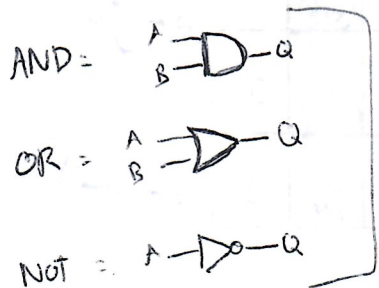 AND = A B Q
OR = A B Q
NOT = A Q